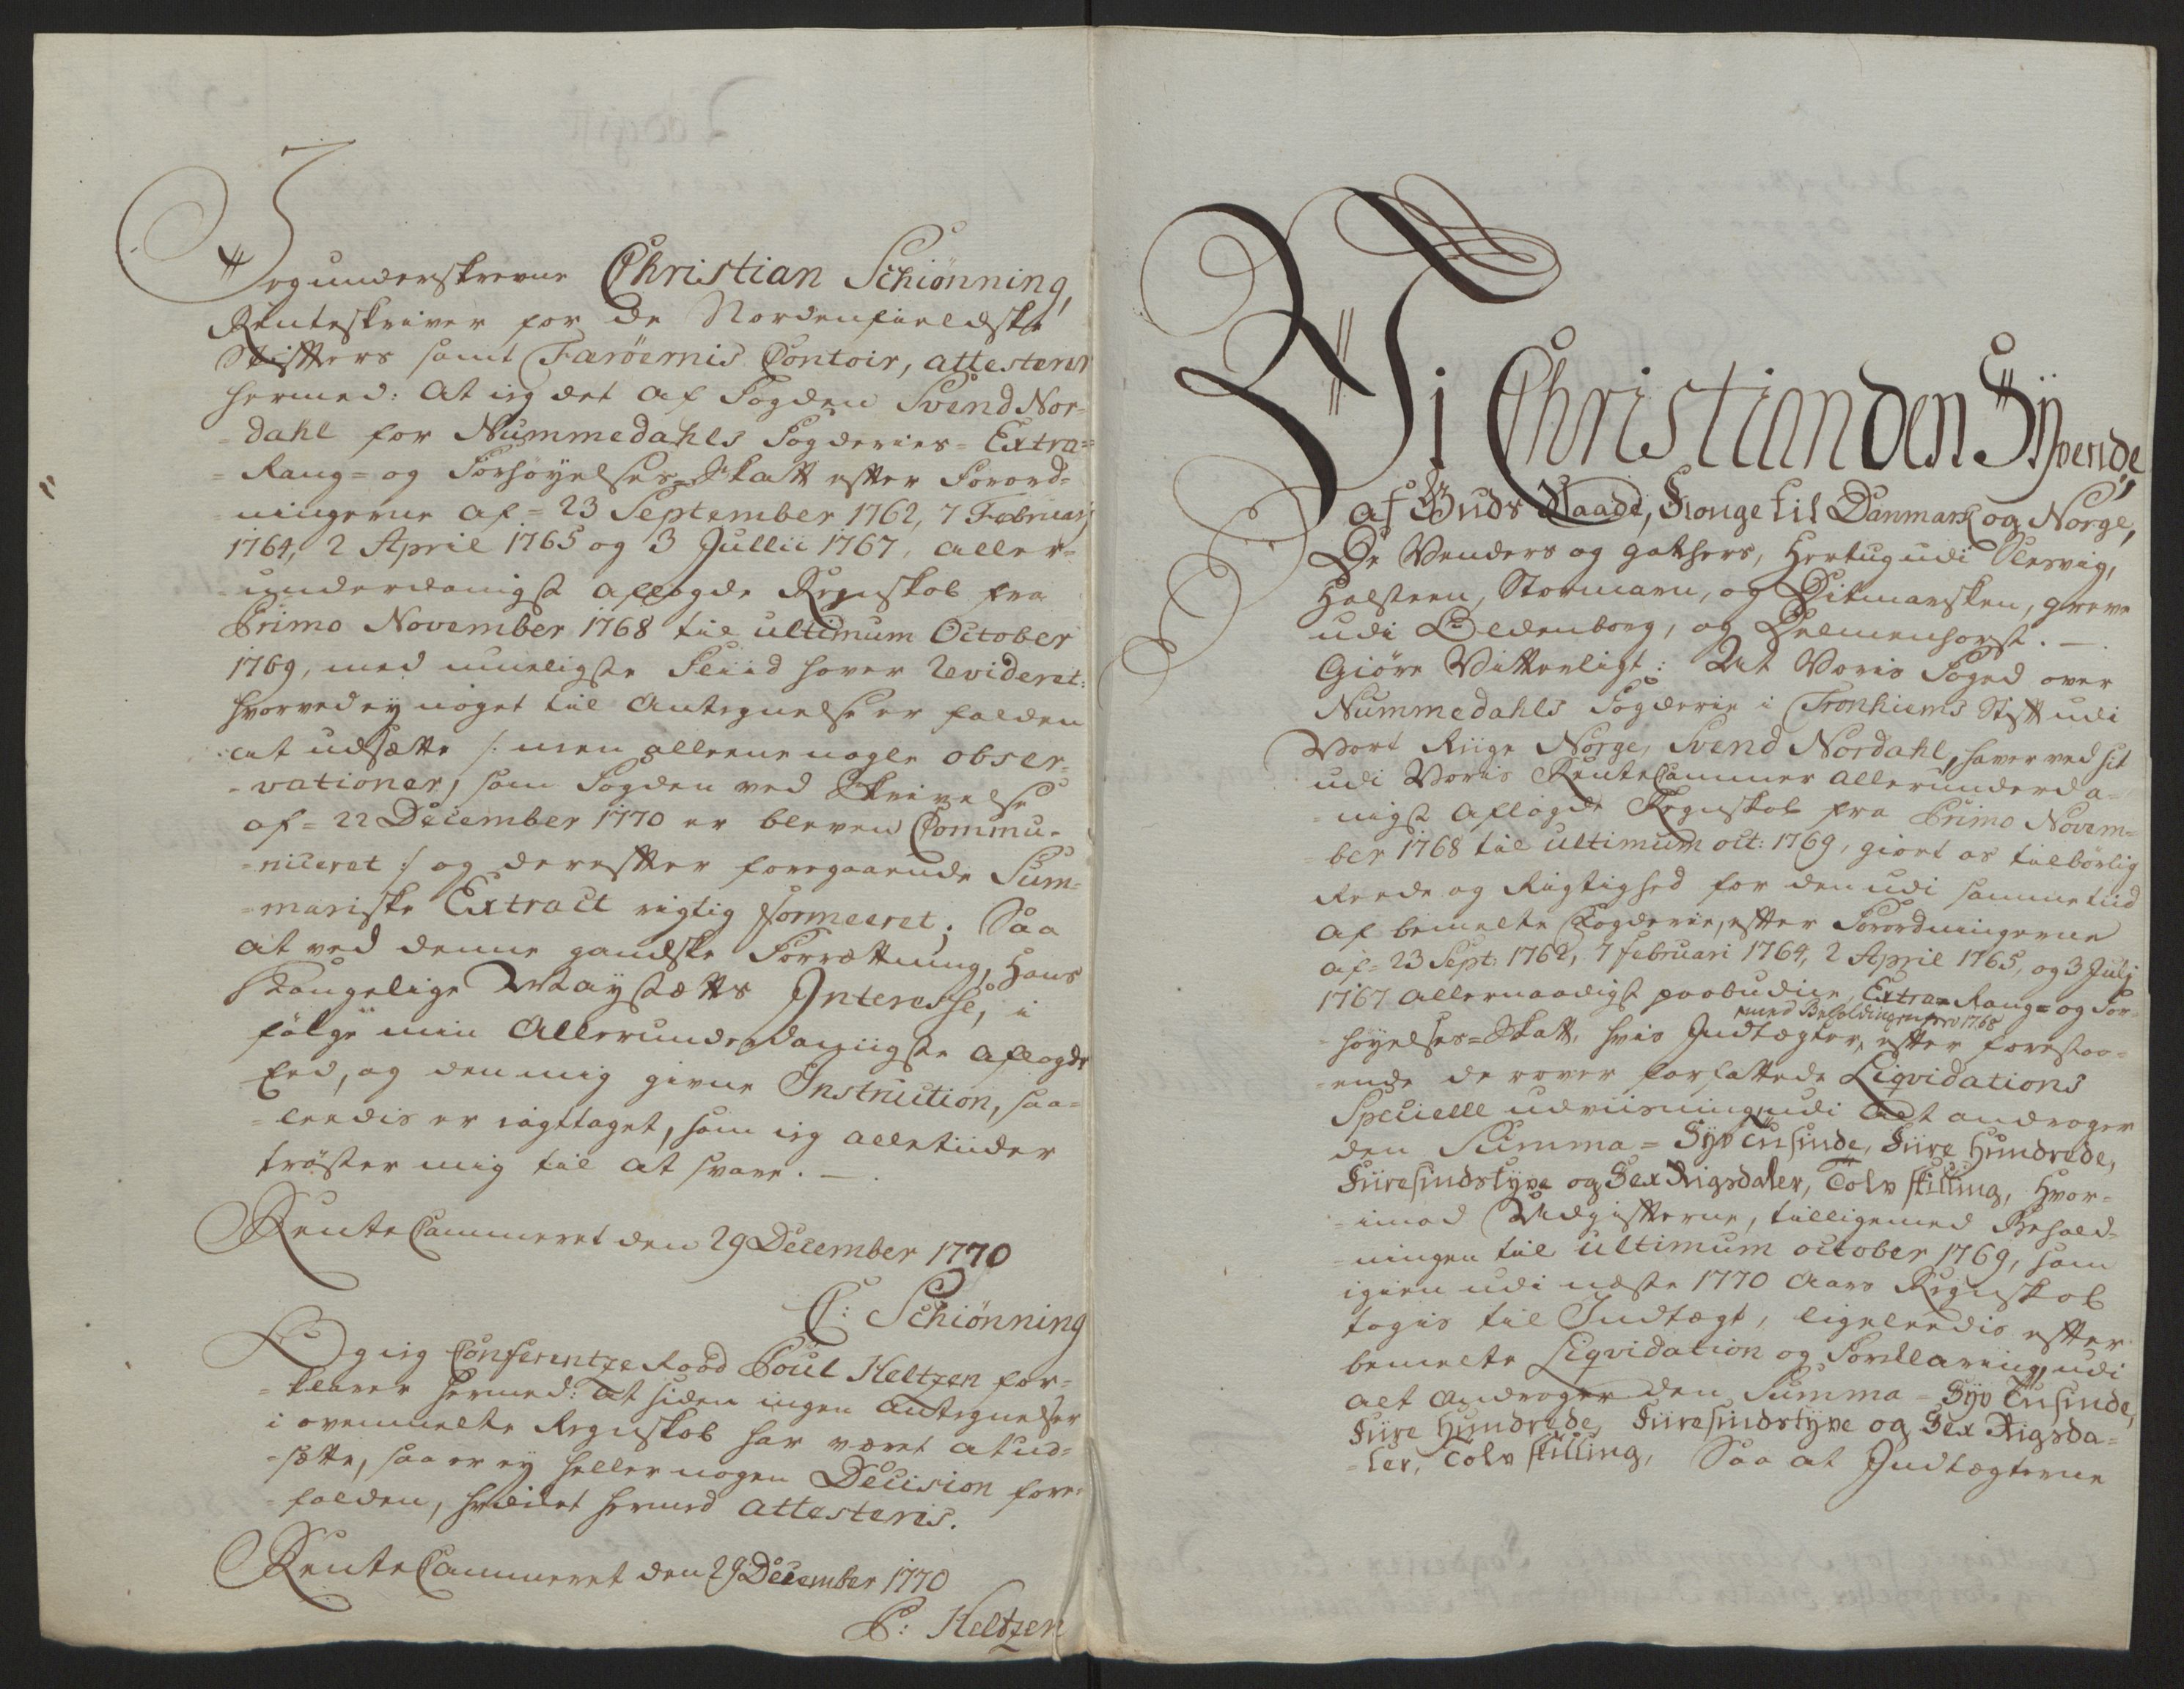 Jeg underskrevne Christian Schiönning,
Renteskriver for de Nordenfieldske
Stifters samt Færöernis Contoir, attesterer
hermed: At ieg det af Fogden Svend Nor-
-dahl for Nummedahls Fogderies- Extra-
-Rang- og Forhöyelses-Skatt efter Forord-
-ningerne af- 23 September 1762, 7 Februarj
1764, 2 April 1765 og 3 Jullii 1767, aller-
-underdanigst aflagde Regnskob fra
Primo November 1768 til ultimum October
1769, med mueligste Fliid haver Revideret:
hvorved ey noget til Antegnelse er falden
at udsætte /: men alleene nogle obser-
-vationer, som Fogden ved Skrivelse
af- 22 December 1770 er bleven Commu-
-niceret :/ og derefter foregaaende Sum-
-mariske Extract rigtig formeeret; Saa
at ved denne gandske Forrættning, Hans
Kongelige Mayestætts Interesse, i
fölge min Allerunderdaniigste aflagde
Eed, og den mig givne Instruction, saa-
-leedis er iagttaget, som ieg alletiider
tröster mig til at svare. —
RenteCammeret den 29 December 1770
C: Schiönning
Og ieg ConferentzeRaad Poul Heltzen for-
-klarer hermed: at siden ingen Antegnelser
i ovenmelte Regnskob har været at ud-
-sætte, saa er ey heller nogen Decision fore-
falden, hvilket hermed attesteris.
RenteCammeret den 29 December 1770
P: Heltzen
Vi Christian den Syvende
af Guds Naade, Konge til Danmark og Norge,
De Venders og Gothers, Hertug udi Slesvig,
Holsteen, Stormarn, og Ditmarsken, Greve
udi Oldenborg, og Delmenhorst. —
Giöre Vitterligt: At Voris Foged over
Nummedahls Fogderie i Tronhiems Stift udi
Vort Riige Norge, Svend Nordahl, haver ved sit
udi Voris RenteCammer allerunderda-
-nigst aflagde Regnskob fra Primo Novem-
ber 1768 til ultimum oct: 1769, giort os tilbörlig
Reede og Rigtighed for den udi samme tiid
af bemelte Fogderie, efter Forordningerne
af- 23 Sept: 1762, 7 februari 1764, 2 April 1765, og 3 Julj
1767 allernaadigst paabudne Extra- Rang- og For-
med Beholdningen fra 1768
-höyelses-Skatt, hvis Indtægter, efter forestaa-
-ende derover forfattede Liqvidations
Specielle udviisning, udi alt androger
den Summa- Syv Tusinde, Fiire Hundrede,
Fiiresindstyve og Sex Rigsdaler, Tolv skilling, Hvor-
-imod Udgifterne, tilligemed Behold-
-ningen til ultimum october 1769, som
igien udi næste 1770 Aars Regnskob
tages til Indtægt, ligeleedis efter
bemelte Liqvidation og Forklaring, udi
alt androger den Summa- Syv Tusinde,
Fiire Hundrede, Fiiresindstyve og Sex Rigsda-
-ler, Tolv skilling, Saa at Indtægterne